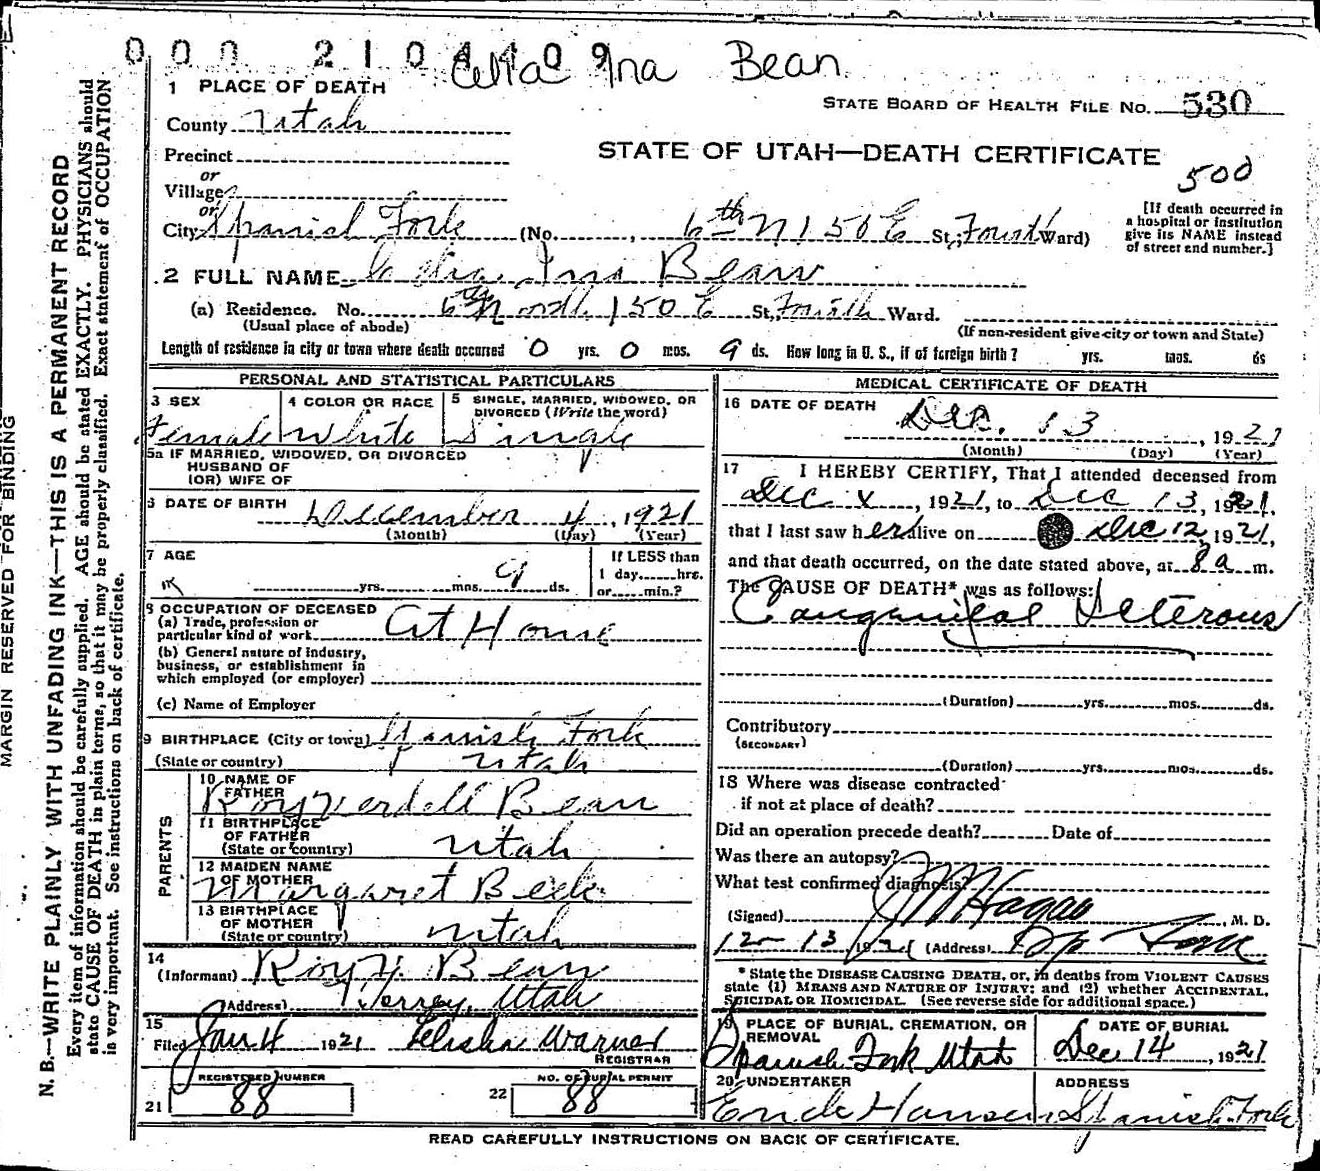 000 2104409
Ina Bean
1 PLACE OF DEATH
STATE BOARD OF HEALTH FILE NO. 530
County Utah
STATE OF UTAH—DEATH CERTIFICATE
Precinct
500
or
Village
or
City Spanish Fork (No. , 6th N 150 E St.; Fourth Ward)
[If death occurred in a hospital or institution give its NAME instead of street and number.]
2 FULL NAME Ina Bean
(a) Residence. No. 6th North 150 E St., Fourth Ward.
(Usual place of abode)
(If non-resident give city or town and State)
Length of residence in city or town where death occurred 0 yrs. 0 mos. 9 ds. How long in U. S., if of foreign birth? yrs. mos. ds
PERSONAL AND STATISTICAL PARTICULARS
3 SEX
4 COLOR OR RACE
5 SINGLE, MARRIED, WIDOWED, OR DIVORCED (Write the word)
Female White Single
5a IF MARRIED, WIDOWED, OR DIVORCED
HUSBAND OF
(OR) WIFE OF
6 DATE OF BIRTH December 4, 1921
(Month) (Day) (Year)
7 AGE
yrs. mos. 9 ds.
If LESS than
1 day hrs.
or min.?
8 OCCUPATION OF DECEASED
(a) Trade, profession or
particular kind of work At Home
(b) General nature of industry,
business, or establishment in
which employed (or employer)
(c) Name of Employer
9 BIRTHPLACE (City or town) Spanish Fork
(State or country) Utah
PARENTS
10 NAME OF
FATHER
Roy Verdell Bean
11 BIRTHPLACE
OF FATHER
(State or country) Utah
12 MAIDEN NAME
OF MOTHER
Margaret Beck
13 BIRTHPLACE
OF MOTHER
(State or country) Utah
14
(Informant) Roy V. Bean
(Address) Torrey, Utah
15
Filed Jan 4 1921 Elisha Warner
REGISTRAR
REGISTERED NUMBER
21 88
NO. OF BURIAL PERMIT
22 88
MEDICAL CERTIFICATE OF DEATH
16 DATE OF DEATH Dec. 13, 1921
(Month) (Day) (Year)
17 I HEREBY CERTIFY, That I attended deceased from
Dec , 1921, to Dec 13, 1921,
that I last saw her alive on Dec 12, 1921,
and that death occurred, on the date stated above, at 8 a m.
The CAUSE OF DEATH* was as follows:
Conganital Icterous
(Duration) yrs. mos. ds.
Contributory
(SECONDARY)
(Duration) yrs. mos. ds.
18 Where was disease contracted
if not at place of death?
Did an operation precede death? Date of
Was there an autopsy?
What test confirmed diagnosis?
(Signed) Hagan, M. D.
12-13, 1921 (Address) Sp Fork
* State the DISEASE CAUSING DEATH, or, in deaths from VIOLENT CAUSES
state (1) MEANS AND NATURE OF INJURY; and (2) whether ACCIDENTAL,
SUICIDAL OR HOMICIDAL. (See reverse side for additional space.)
19 PLACE OF BURIAL, CREMATION, OR
REMOVAL
Spanish Fork Utah
DATE OF BURIAL
Dec 14, 1921
20 UNDERTAKER
Hansen
ADDRESS
Spanish Fork
READ CAREFULLY INSTRUCTIONS ON BACK OF CERTIFICATE.
MARGIN RESERVED FOR BINDING
N. B.—WRITE PLAINLY WITH UNFADING INK—THIS IS A PERMANENT RECORD
Every item of information should be carefully supplied. AGE should be stated EXACTLY. PHYSICIANS should
state CAUSE OF DEATH in plain terms, so that it may be properly classified. Exact statement of OCCUPATION
is very important. See instructions on back of certificate.